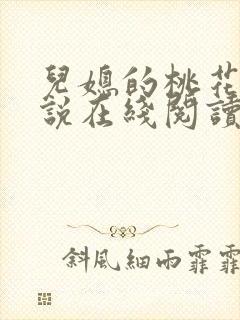 兒媳的桃花
說在綫閱讀
斜風細雨霏霏